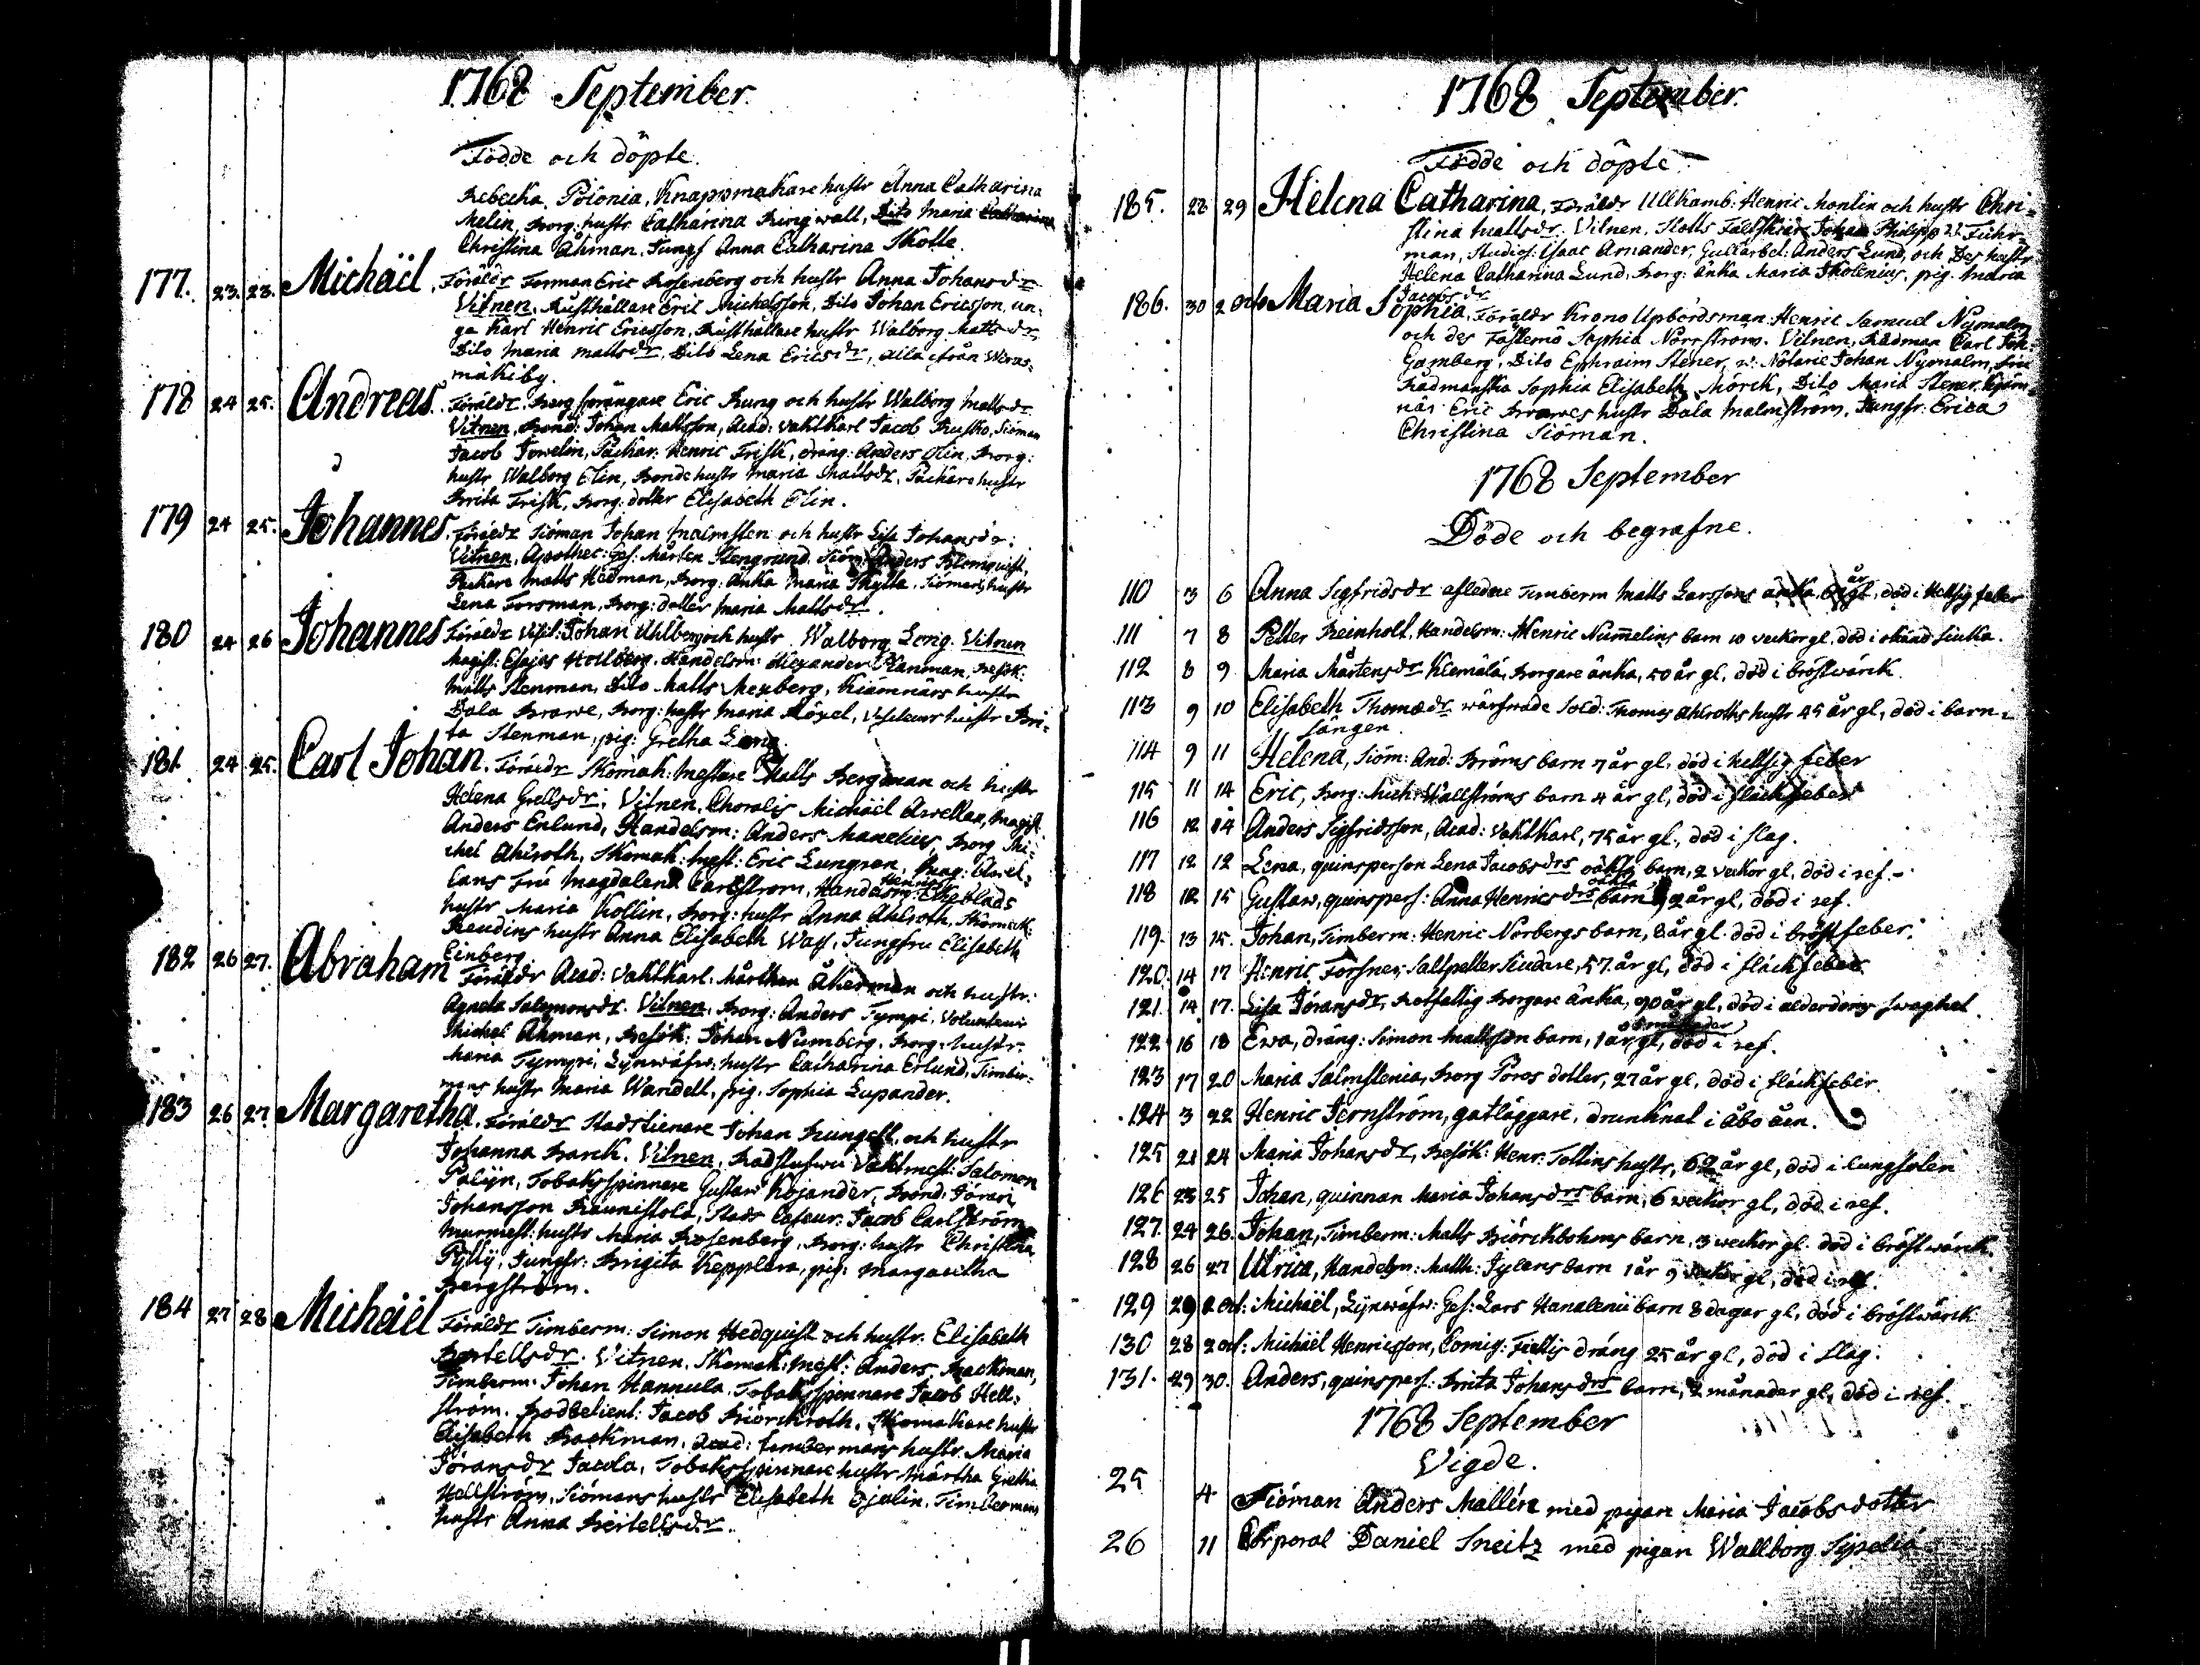 1768 September.
Födde och döpte.
Rebecka Polonia, Knapmakare hustr Anna Catharina
Melin, Borg: hustr Catharina Ringwall, Dito Maria Catharina
Christina Åhman, Jungf Anna Catharina Kolle.
177. 23. 23. Michäel, Föräldr Forman Eric Rosenberg och hustr Anna Johansdr
Vitnen, Rusthållare Eric Mickelsson, Dito Johan Ericsson, un-
ga Karl Henric Ericsson, Rusthållare hustr Walborg Mattsdr,
Dito Maria Mattsdr, Dito Lena Ericsdr, alla ifrån Weras-
mäkiby.
178 24 25. Andreas. Föräldr. Eric Rung och hustr Walborg Mattsdr.
Vitnen, Bond: Johan Mattsson, Acad: Vaktkarl Jacob Rusko, Siöman
Jacob Forselin, Packar. Henric Frisk, dräng: Anders Elin, Borg:
hustr Walborg Elin, Bonde hustr Maria Mattsdr, Packare hustr
Brita Frisk, Borg: dotter Elisabeth Elin.
179 24 25. Johannes. Föräldr Siöman Johan Malmsten och hustr Lisa Johansdr.
Vitnen, Apothec: Ges: Mårten Stengrund, Siöm: Anders Blomquist,
Packare Matts Hedman, Borg: änka Maria Thylla, Siömans hustr
Lena Forsman, Borg: dotter Maria Mattsdr.
180 24 26 Johannes Föräldr Visit: Johan Uhlberg och hustr Walborg Leng. Vitnen
Magist: Esajas Hollberg, Handelsm: Alexander Planman, Besök:
Matts Stenman, Dito Matts Mexberg, Kiämnärs hustr
Dala Brawe, Borg: hustr Maria Röxel, Visiteurs hustr Bri-
ta Stenman, pig: Gretha Leng
181. 24 25. Carl Johan. Föräldr Skomak: Mästare Matts Bergman och hustr
Helena Grellsdr. Vitnen, Choralis Michäel Avellan, Magist
Anders Enlund, Handelsm: Anders Manelius, Borg Mi-
chel Ahlroth, Skomak: Mest: Eric Lungren, Mag: Avel-
lans Fru Magdalena Carlström, Handelsm: Henric Ekeblads
hustr Maria Kollin, Borg: hustr Anna Ahlroth, Skomak:
Reudins hustr Anna Elisabeth Wass, Jungfru Elisabeth
Einberg.
182 26 27. Abraham Föräldr Acad: Vaktkarl: Mårthen Åkerman och hustr.
Agneta Salomonsdr. Vitnen, Borg: Anders Tympi, Volunteur
Michel Åhman, Besök: Johan Numberg, Borg: hustr.
Maria Tympi, Lijnwäfw: hustr Catharina Erlund, Timber-
mans hustr Maria Wandell, pig: Sophia Lupander.
183 26 27. Margaretha. Föräldr Stadstienare Johan Rungell och hustr
Johanna Barck. Vitnen, Rådstufwu Vaktmest: Salomon
Palijn, Tobaksspinnare Gustaw Kojander, Bond: Jöran
Johansson Raunistola, Stads Casseur: Jacob Carlström,
Murmest: hustr Maria Rosenberg, Borg: hustr Christina
Pylly, Jungfr: Brigita Kepplera, pig: Margaretha
Bergström.
184 27 28 Michäel Föräldr Timberm: Simon Hedquist och hustr. Elisabeth
Bertellsdr. Vitnen, Skomak: Mest: Anders Backman,
Timberm: Johan Hannula, Tobaksspinnare Jacob Hell-
ström. Bodbetient: Jacob Biörckroth. Skomakare hustr
Elisabeth Backman, Acad: timbermans hustr. Maria
Jöransdr Jacola, Tobaksspinnare hustr Märtha Gretha
Hellström, Siömans hustr Elisabeth Ojalin, Timbermans
hustr Anna Bertellsdr.
1768 September.
Födde och döpte
185. 28 29 Helena Catharina, Föräldr Ullkamb: Henric Monlin och hustr Chri-
stina Mattsdr. Vitnen, Slotts Fältskiär Johan Philipp Fuhr-
man, Studios: Isaac Arnander, Gullarbet: Anders Lund, och Des hustr
Helena Catharina Lund, Borg: änka Maria Skolenius, pig. Maria
Jacobsdr
186. 30 2 oct Maria Sophia, Föräldr Krono Upbördsman Henric Samuel Nymalm
och des Fästemö Sophia Norrström. Vitnen, Rådman Carl Joh:
Gamberg, Dito Ephraim Stener, v. Notarie Johan Nymalm, Fru
Rådmanska Sophia Elisabeth Mörck, Dito Maria Stener, Kiäm-
när Eric Brawes hustr Dala Malmström, Jungfr: Erica
Christina Siöman.
1768 September
Döde och begrafne.
110 3 6 Anna Sigfridsdr afledne Timberm Matts Larssons änka, år gl, död i hetsig feber
111 7 8 Petter Reinholt, Handelsm: Henric Nummelins barn 10 veckor gl, död i okänd siuka.
112 8 9 Maria Mårtensdr Klemälä, Borgare änka, 50 år gl, död i bröstwärck.
113 9 10 Elisabeth Thomædr wärfwade Sold: Thomas Ahlroths hustr 45 år gl, död i barn-
sängen.
114 9 11 Helena, Siöm: And: Bröms barn 7 år gl, död i hetsig feber
115 11 14 Eric, Borg: Mich: Wallströms barn 4 år gl, död i fläckfeber
116 12 14 Anders Sigfridsson, Acad: Vaktkarl, 75 år gl, död i slag.
117 12 12 Lena, quinsperson Lena Jacobsdrs oäkta barn, 2 veckor gl, död i ref.
118 12 15 Gustaw, quinspers: Anna Henricsdrs oäkta barn, 2 år gl, död i ref.
119. 13 15. Johan, Timberm: Henric Norbergs barn, 8 år gl. död i bröstfeber.
120. 14 17 Henric Forsner, Saltpeter Siudare, 57 år gl, död i fläckfeber
121. 14 17. Lisa Jöransdr, Botfattig Borgare änka, 90 år gl, död i ålderdoms swaghet.
122 16 18 Ewa, dräng: Simon Mattsson barn, 1 år gl, död i ref.
123 17 20 Maria Salmstenia, Borg Poros dotter, 27 år gl, död i fläckfeber.
124 3 22 Henric Jernström, gatläggare, drunknat i Åbo åen.
125 21 24 Maria Johansdr, Besök: Henr. Tollins hustr, 62 år gl, död i lungsoten
126 23 25 Johan, quinnan Maria Johansdrs barn, 6 veckor gl, död i ref.
127. 24 26. Johan, Timberm: Matts Biörckbohms barn, 3 veckor gl. död i bröstwärck.
128 26 27 Ulrica, Handelsm: Math: Tylens barn 1 år 9 veckor gl, död i ref.
129 29 2 oct: Michäel, Lijnwäfw: Ges: Lars Hanalenii barn 8 dagar gl, död i bröstwärck
130 28 2 oct: Michäel Henricsson, Comig: Fiellis dräng 25 år gl, död i slag.
131. 29 30. Anders, quinspers: Brita Johansdrs barn, 2 månader gl, död i ref.
1768 September
Vigde.
25 4 Siöman Anders Mallén med pigan Maria Jacobsdotter
26 11 Corporal Daniel Sneitz med pigan Wallborg Sipelia